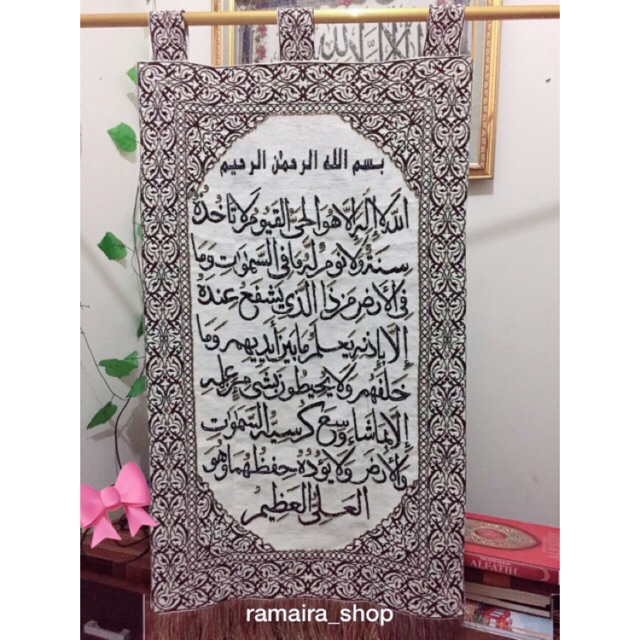 بسم الله الرحمن الرحيم
الله لا إله إلا هو الحي القيوم لا تأخذه
سنة ولا نوم له ما في السموات وما
في الأرض من ذا الذي يشفع عنده
إلا بإذنه يعلم ما بين أيديهم وما
خلفهم ولا يحيطون بشيء من علمه
إلا بما شاء وسع كرسيه السموات
والأرض ولا يؤده حفظهما وهو
العلي العظيم
ALFATIH
ramaira_shop